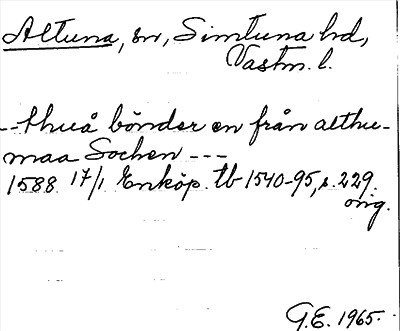 Altuna, sn, Simtuna hd,
Vastm. l.
-- thuå bönder en från althu-
maa Sochen ---
1588 17/1 Enköp. tb 1540-95, s. 229.
orig.
G.E. 1965.